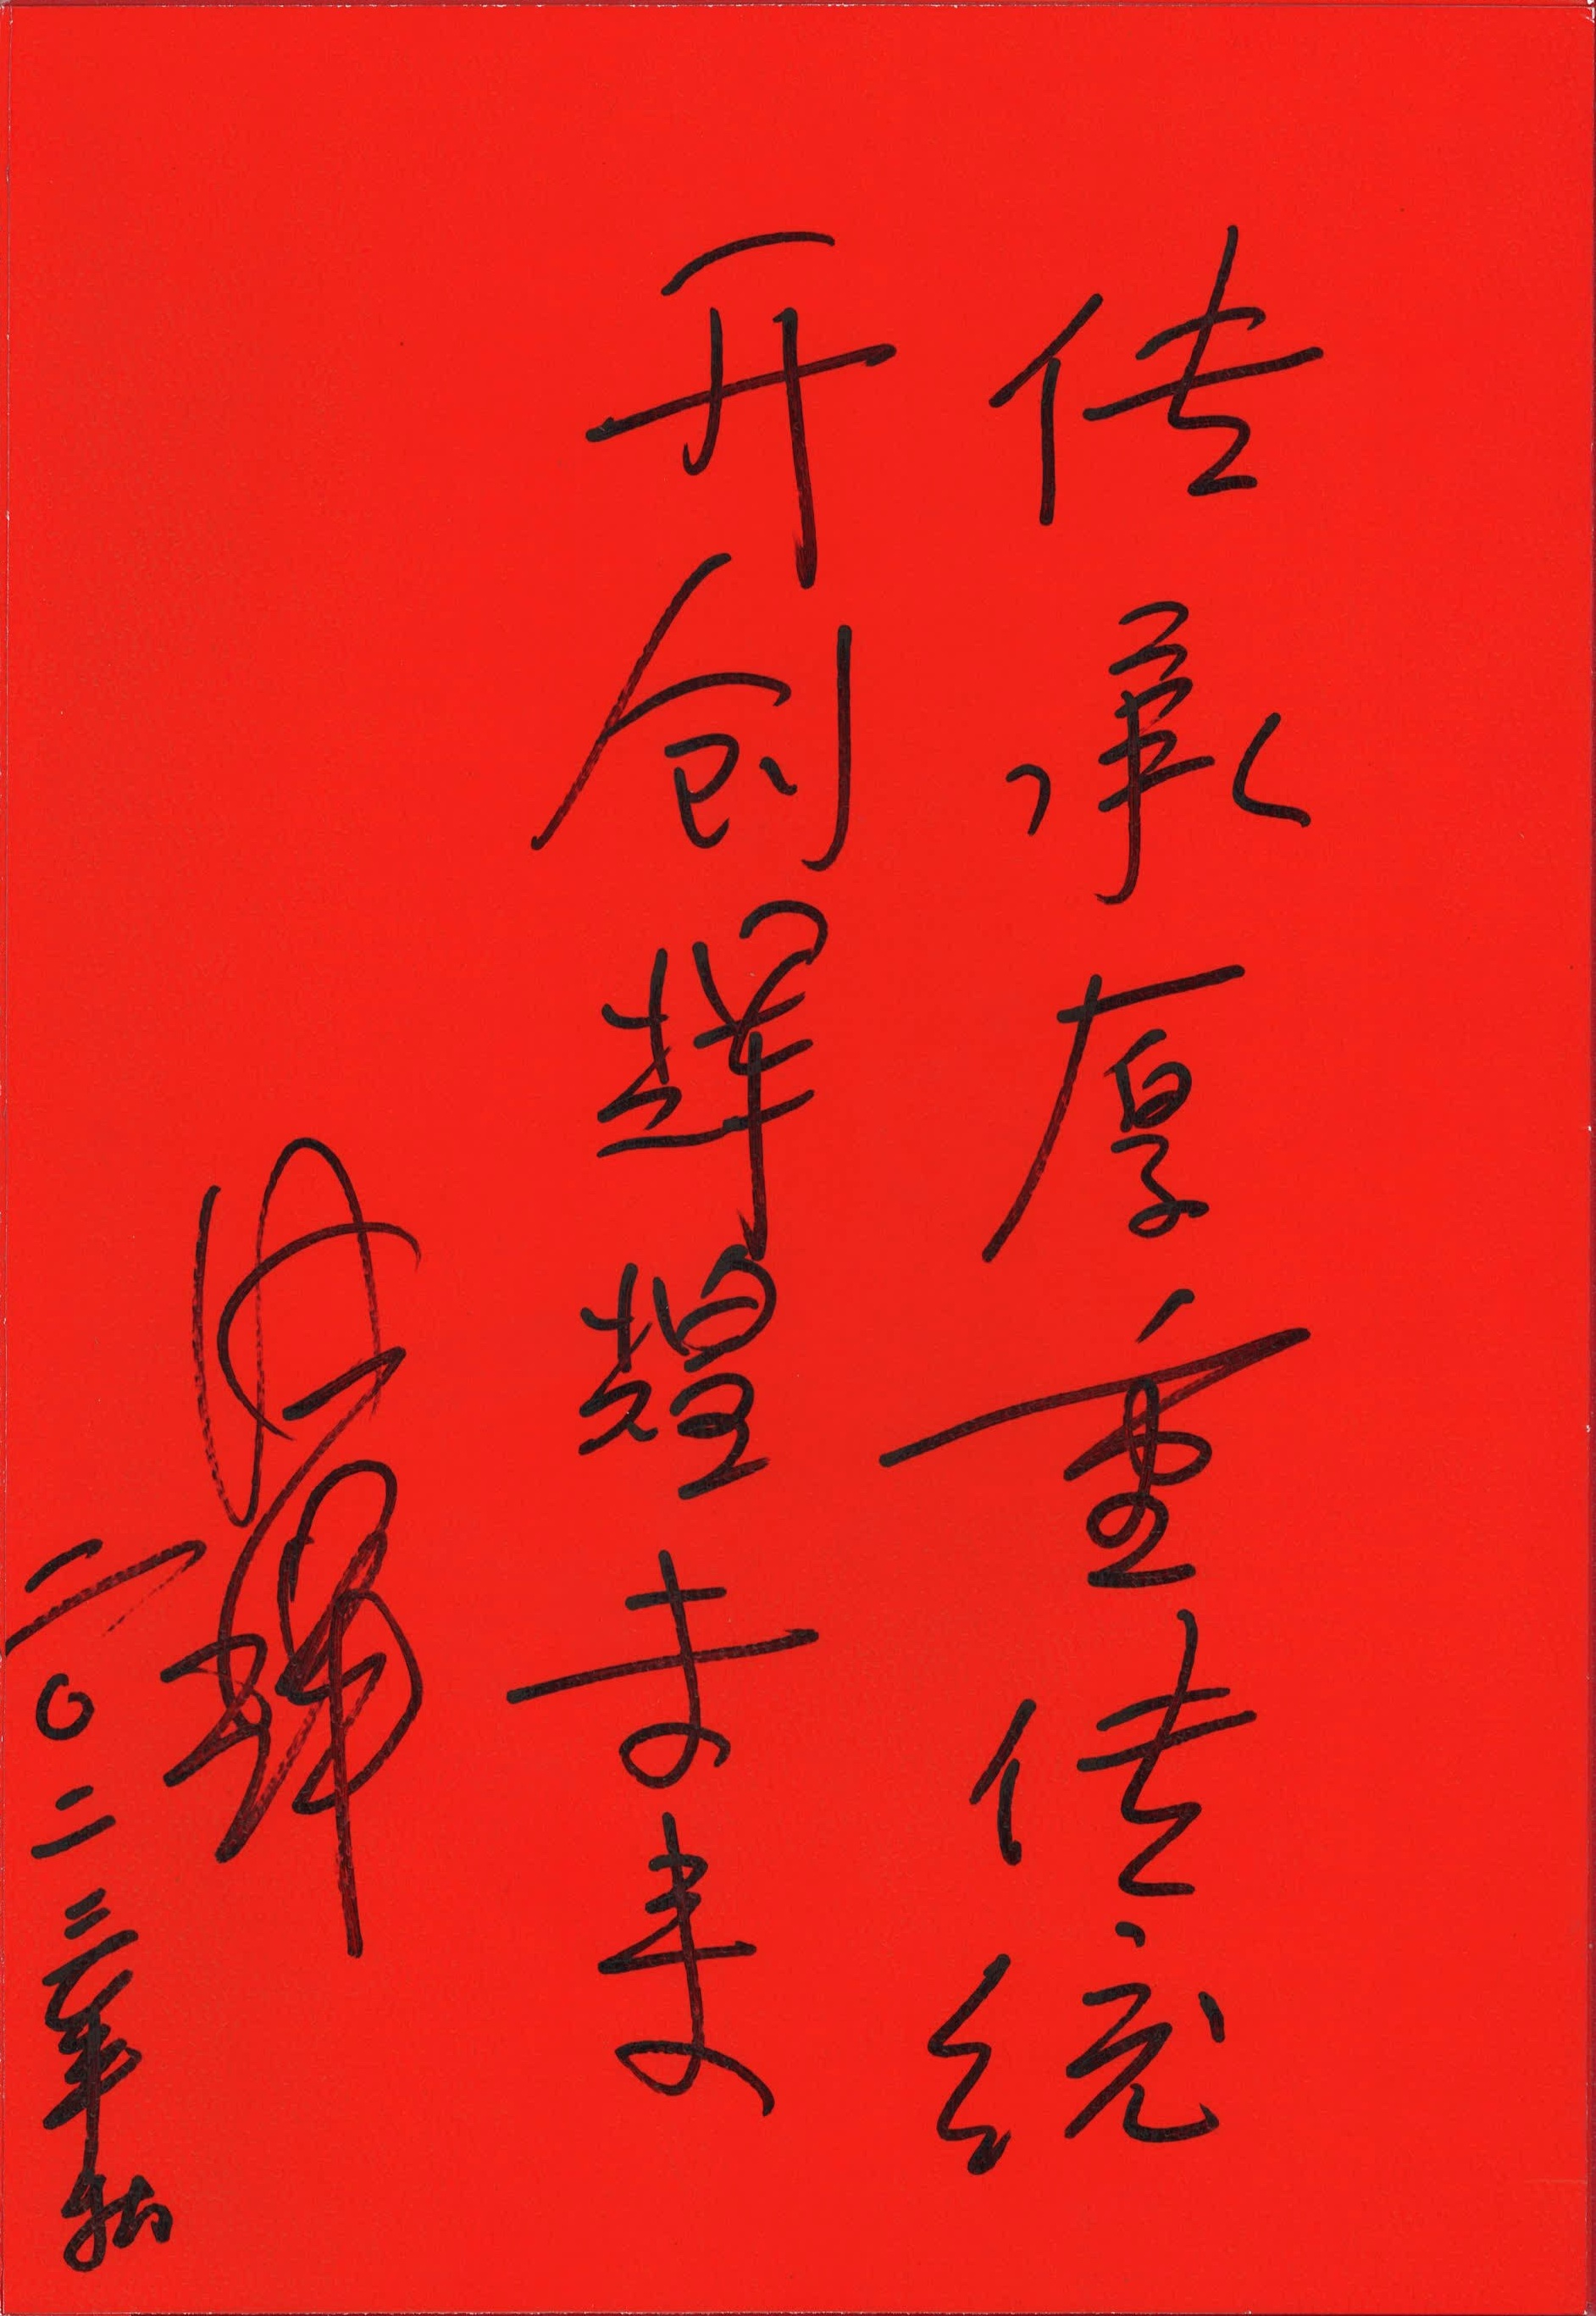 传承厚重传统
开创辉煌未来
二〇二三年秋